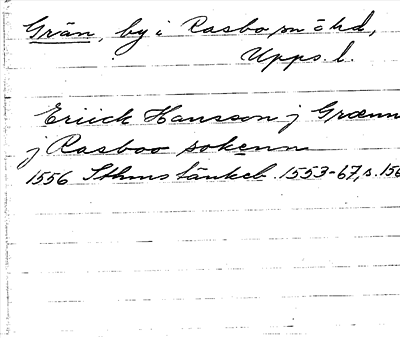 Grän, by i Rasbo sn o hd,
Upps. l.
Eriick Hansson j Grænn
j Rasboo sokenn
1556 Sthms tänkeb. 1553-67, s. 156